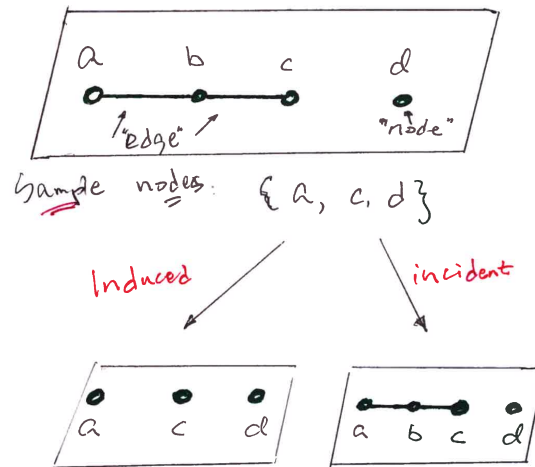 a b c d
"edge" "node"
Sample nodes: {a, c, d}
Induced incident
a c d a b c d